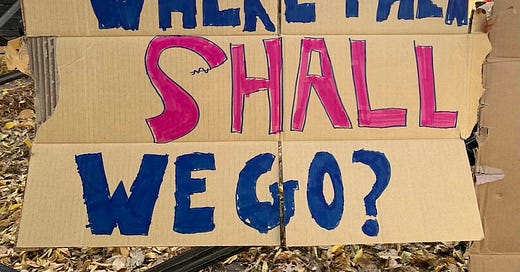 WHERE
SHALL
WE GO?